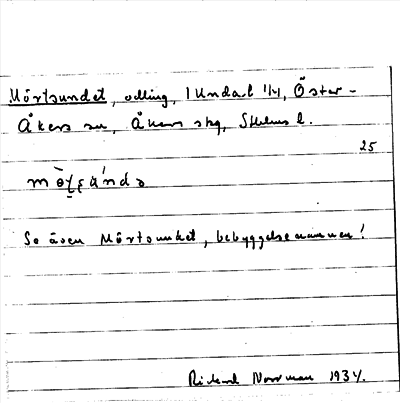 Mörtsundet, odling, 1 Undal 1/4, Öster-
Åkers sn, Åkers skg, Sthlms l.
25
Se även Mörtsundet, bebyggelsenamnen!
Rickard Norrman 1934.